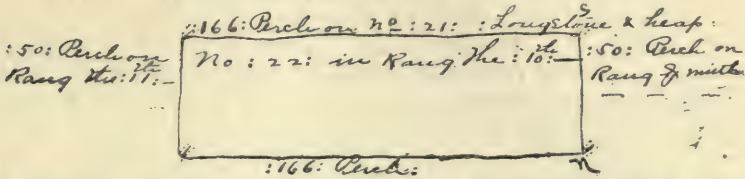 :166: Perch on No :21: :Longstone & heap: S
:50: Perch on
Rang the: 11th:-
No : 22: in Rang the : 10:th-
:50: Perch on
Rang &
:166: Perch:
n